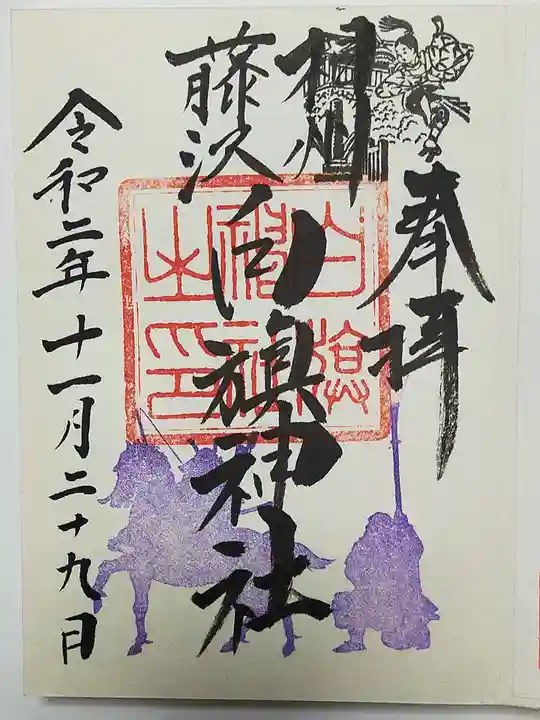 奉拝
相州
藤沢
白旗神社
令和二年十一月二十九日
白旗
神社
之印